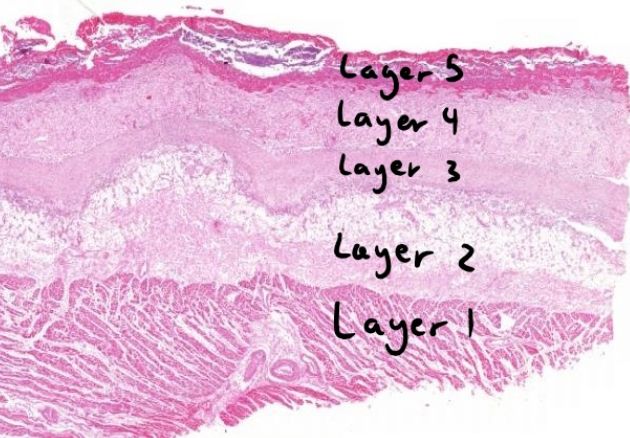 Layer 5
Layer 4
Layer 3
Layer 2
Layer 1